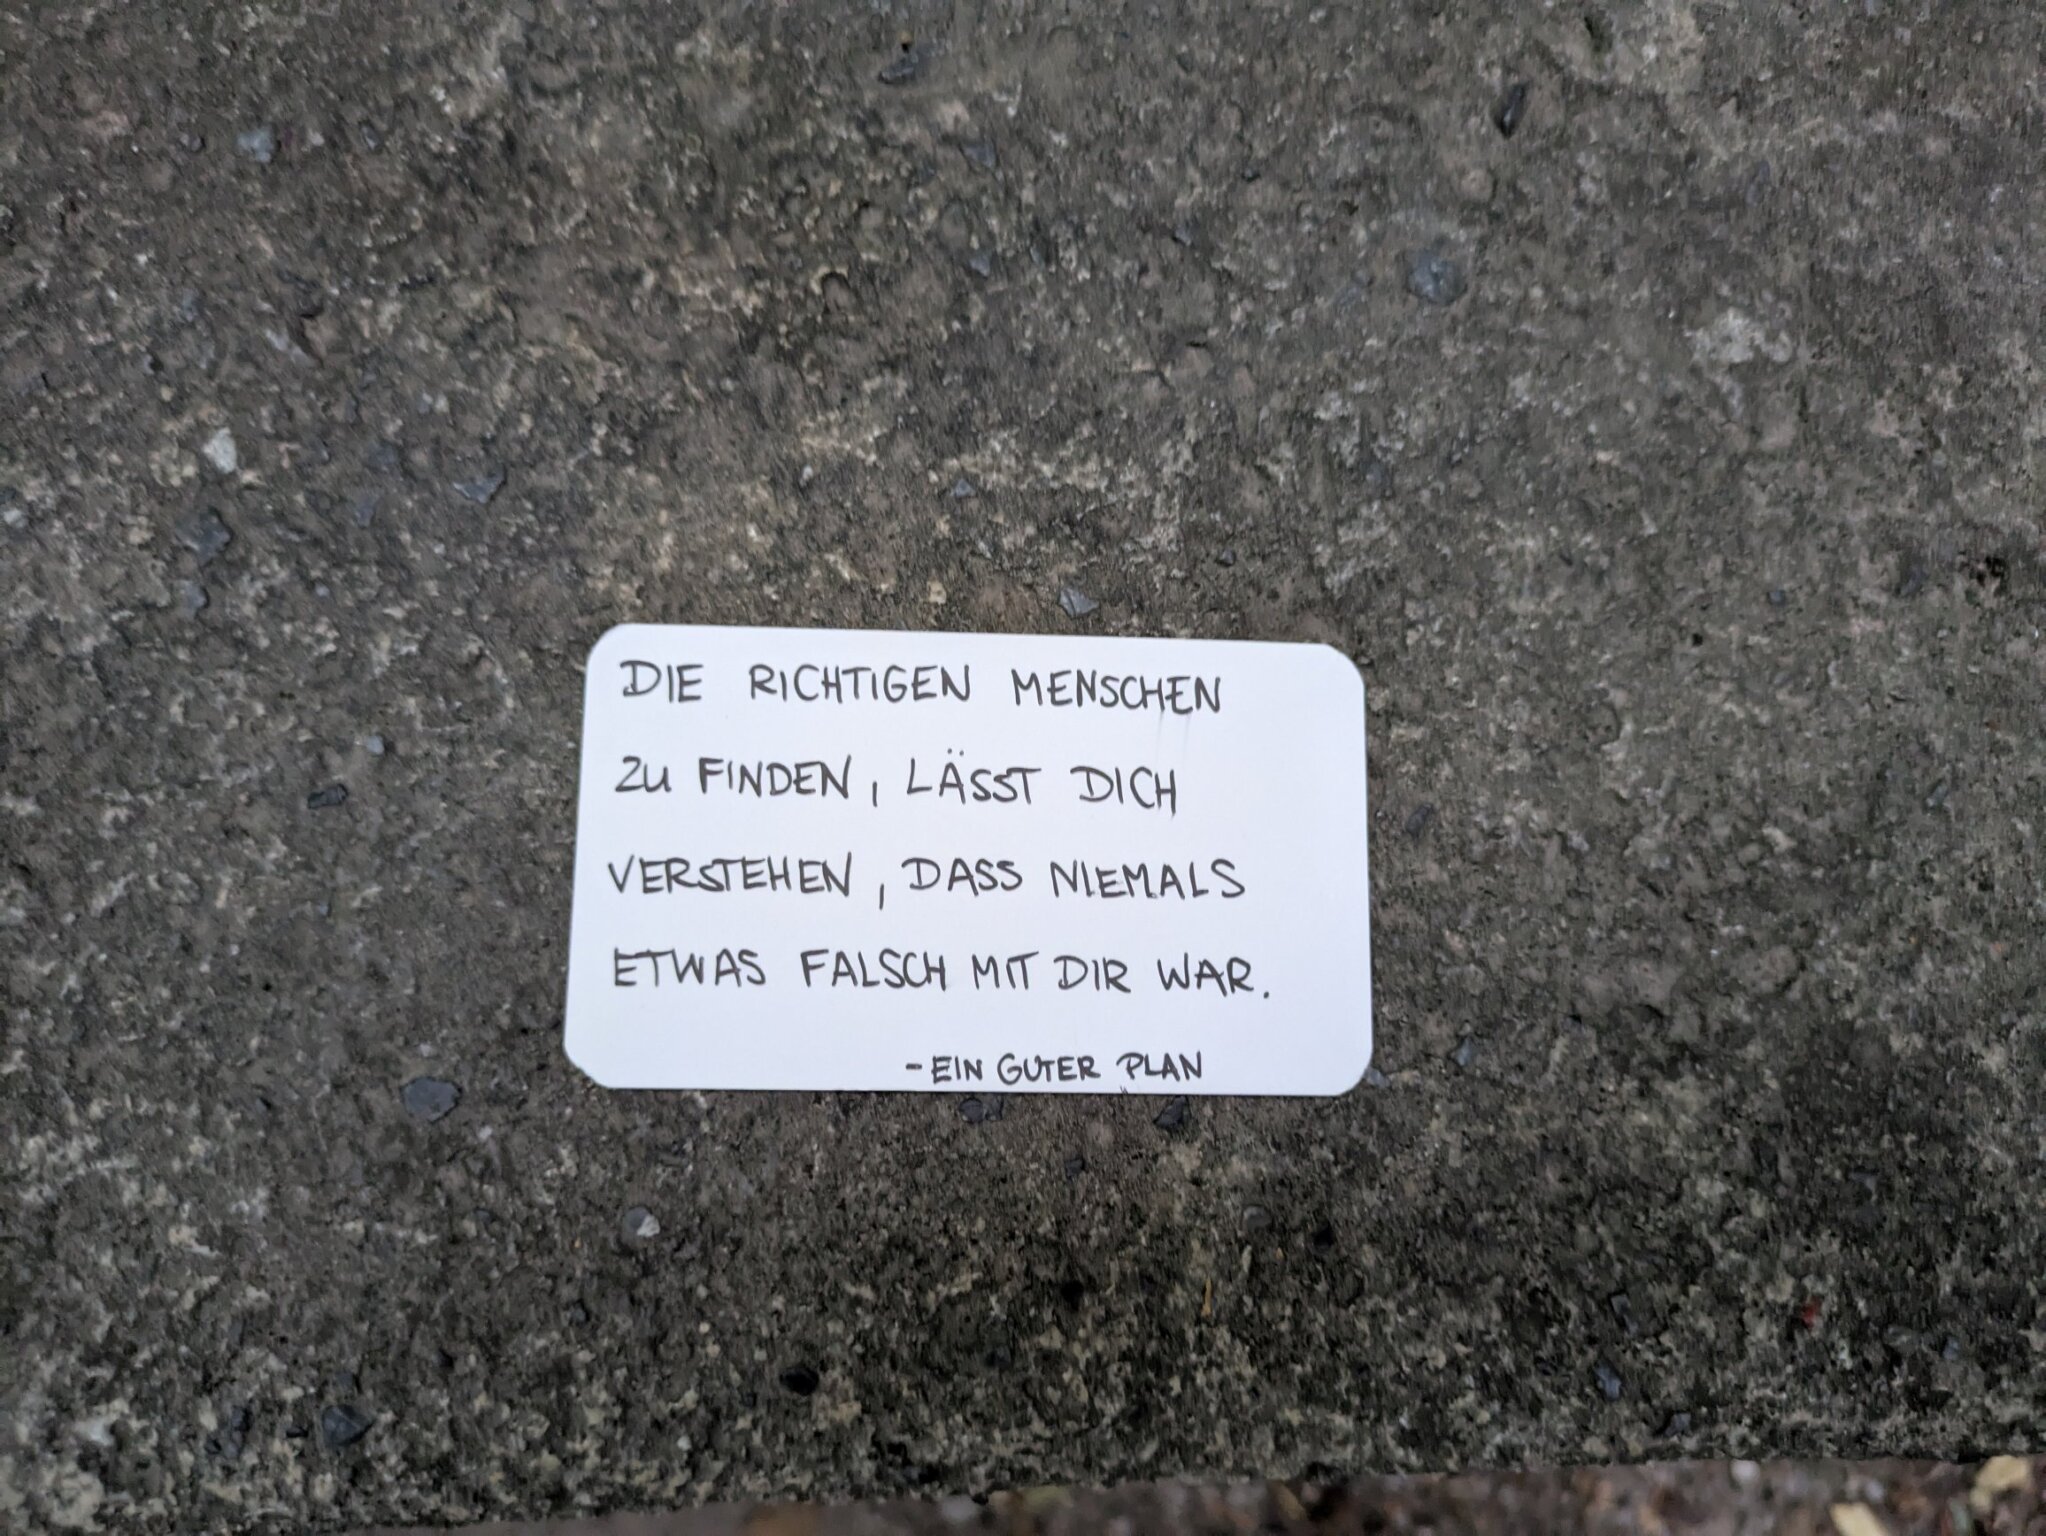 DIE RICHTIGEN MENSCHEN
ZU FINDEN, LÄSST DICH
VERSTEHEN, DASS NIEMALS
ETWAS FALSCH MIT DIR WAR.
- EIN GUTER PLAN